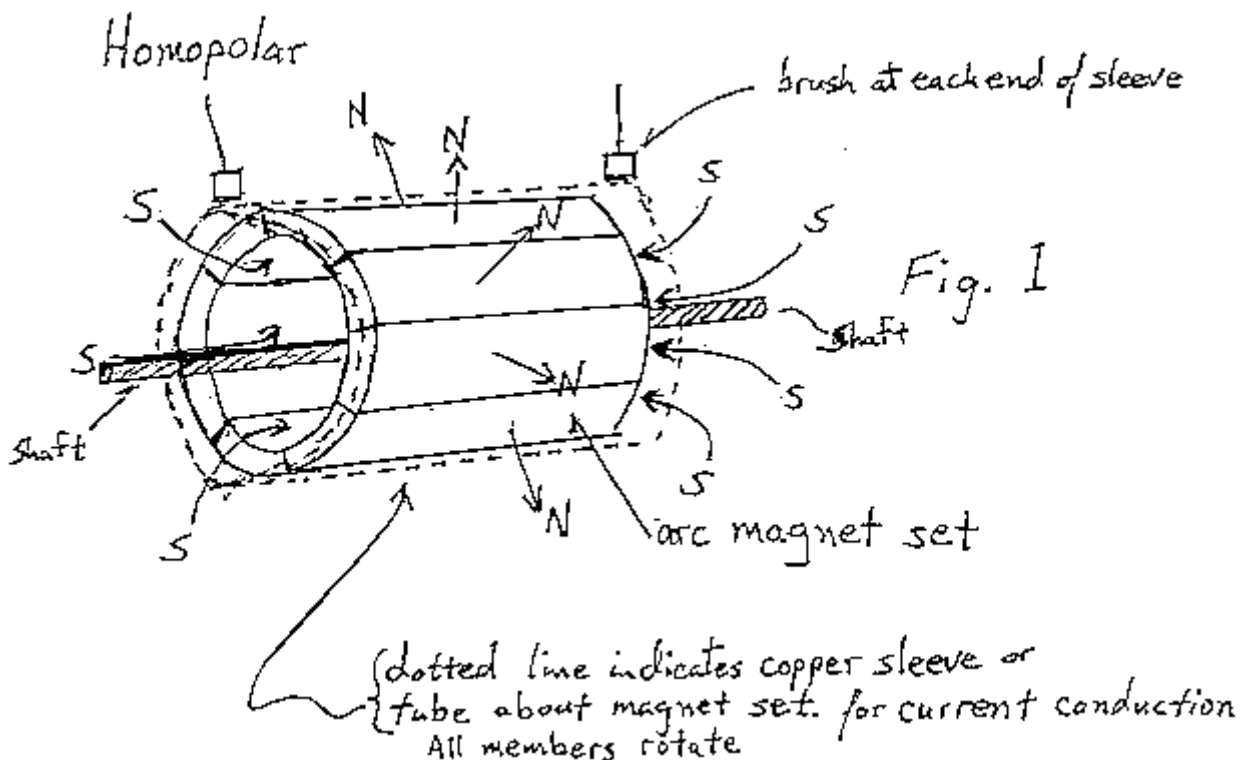 Homopolar
brush at each end of sleeve
N
N
S
S
N
S
Fig. 1
S
shaft
S
shaft
N
S
N
S
S
arc magnet set
dotted line indicates copper sleeve or
tube about magnet set. for current conduction
All members rotate